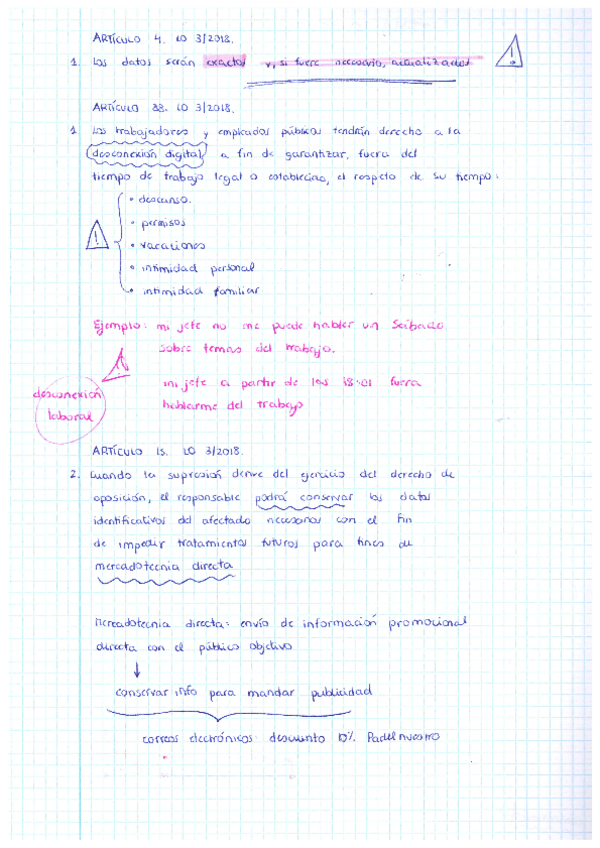 ARTÍCULO 4. LO 3/2018.
1. Los datos serán exactos y, si fuere necesario, actualizados
ARTÍCULO 88. LO 3/2018.
1 Los trabajadores y empleados públicos tendrán derecho a la
desconexión digital a fin de garantizar, fuera del
tiempo de trabajo legal o establecino, el respeto de su tiempo:
• descanso.
• permisos
• vacaciones
• intimidad personal
• intimidad familiar
Ejemplo: mi jefe no me puede hablar un Sábado
sobre temas del trabajo.
mi jefe a partir de las 18:01 fuera
hablarme del trabajo
desconexión
laboral
ARTÍCULO 15. LO 3/2018.
2. Cuando la supresión derive del ejercicio del derecho de
oposición, el responsable podrá conservar los datos
identificativos del afectado necesarios con el fin
de impedir tratamientos futuros para fines de
mercadotecnia directa
Mercadotecnia directa: envío de información promocional
directa con el público objetivo
conservar info para mandar publicidad
correos electrónicos: descuento 10% Padel nuestro